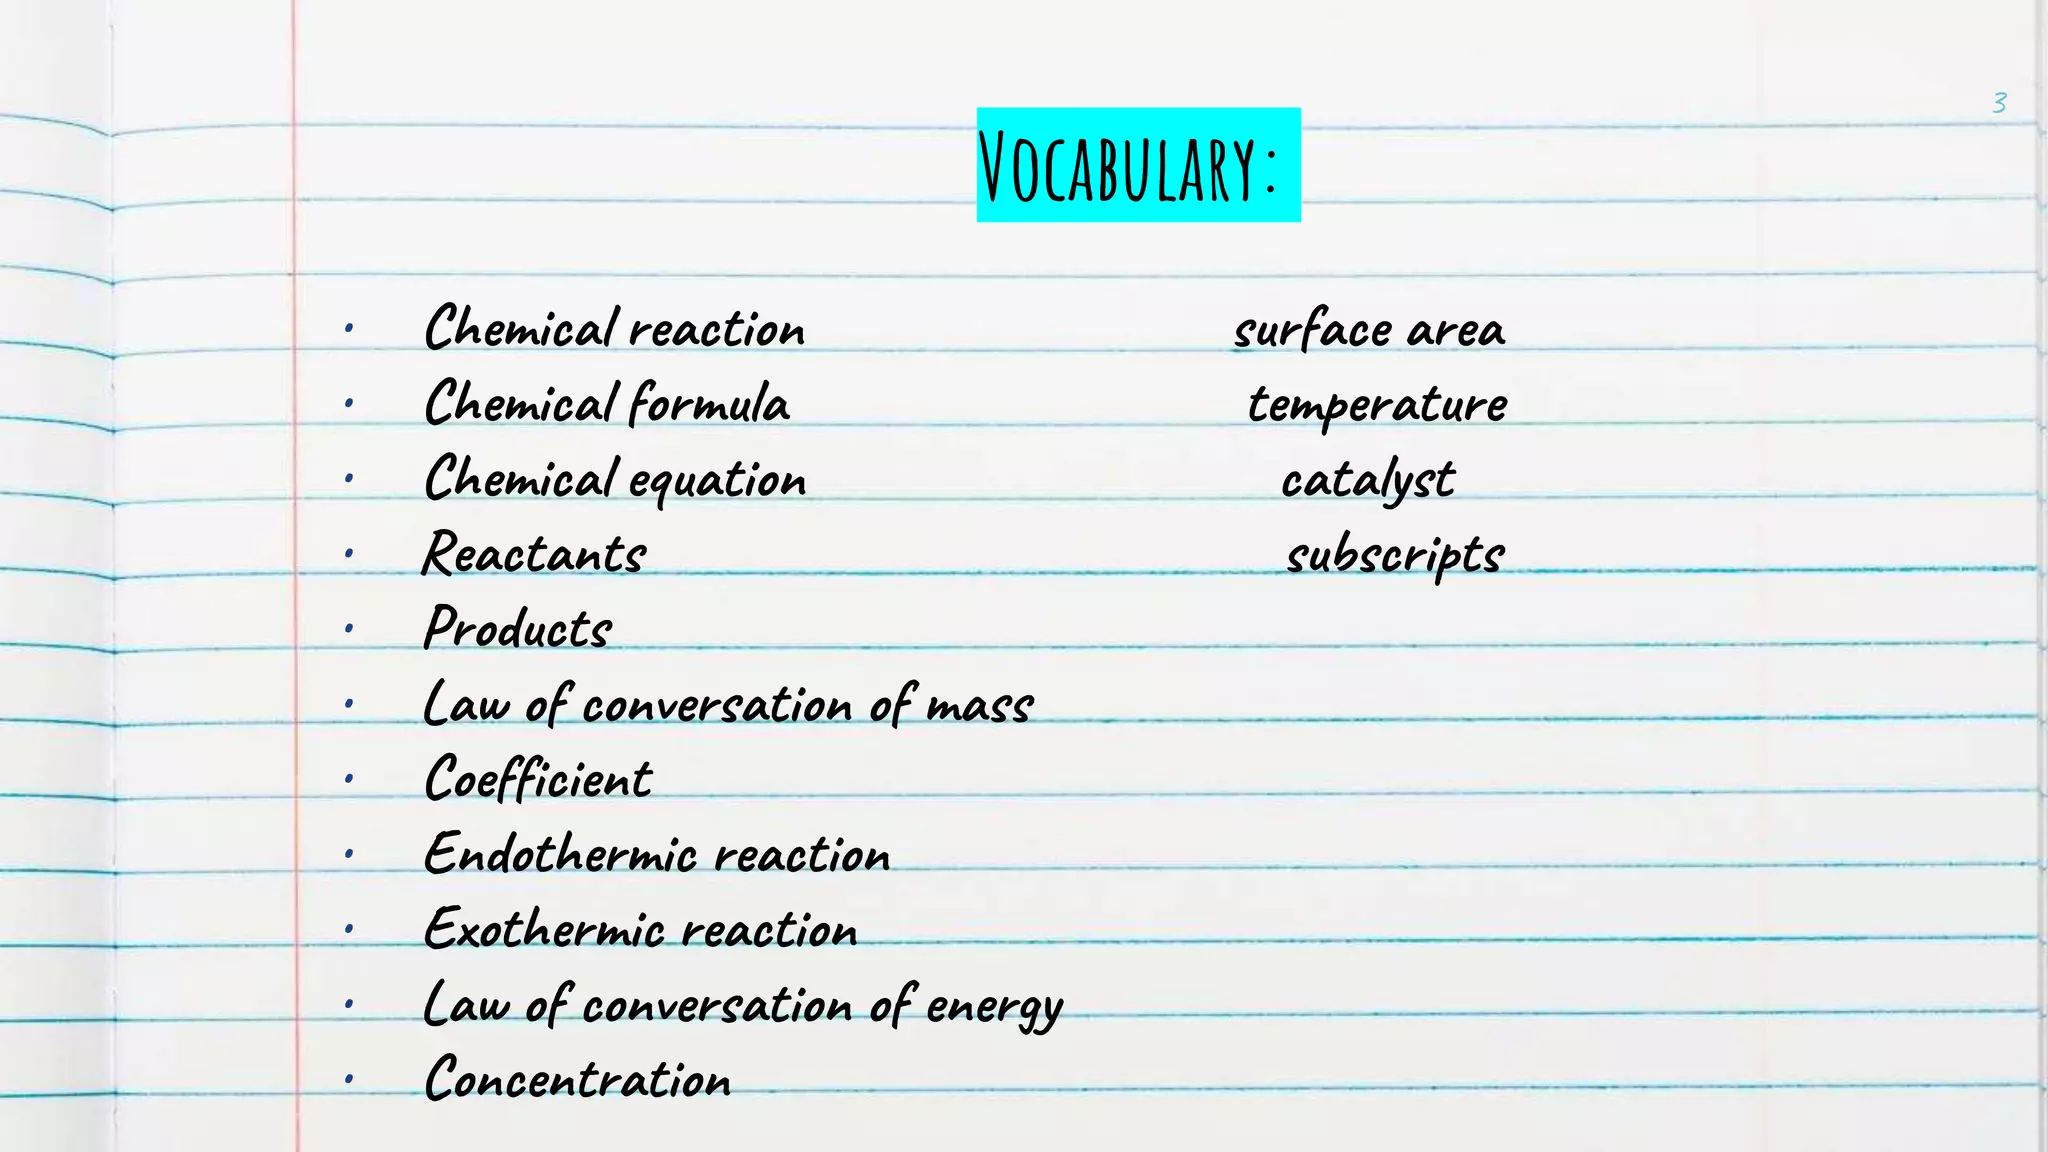 3
Vocabulary:
• Chemical reaction surface area
• Chemical formula temperature
• Chemical equation catalyst
• Reactants subscripts
• Products
• Law of conversation of mass
• Coefficient
• Endothermic reaction
• Exothermic reaction
• Law of conversation of energy
• Concentration